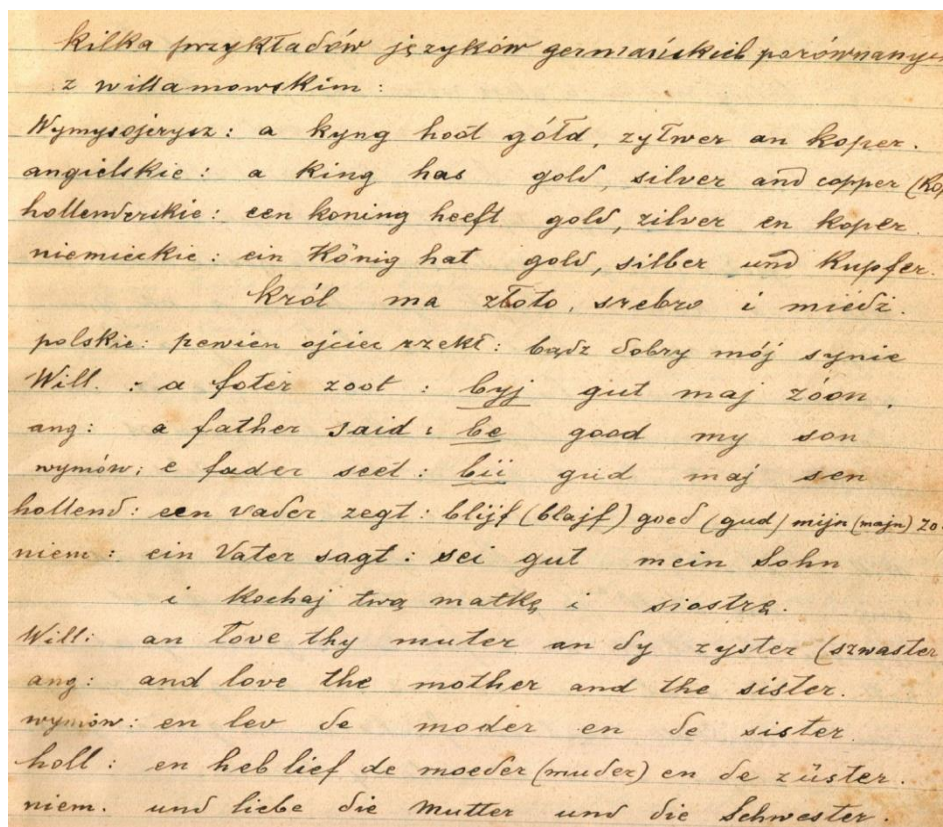 kilka przykładów języków germańskich porównany
z willamowskim:
Wymysojerysz: a kyng hoot gółd, zyłwer an koper.
angielskie: a king has gold, silver and copper (Kop
hollenderskie: een koning heeft gold, zilver en koper
niemieckie: ein König hat gold, silber und Kupfer.
król ma złoto, srebro i miedź.
polskie: pewien ojciec rzekł: bądz dobry mój synie
Will. : a foter zoot : byj gut maj zóon.
ang: a father said : be good my son
wymów: e fader seed : bii gud maj sen
hollend: een vader zegt: blijf (blajf) goed (gud) mijn (majn) zo
niem: ein Vater sagt: sei gut mein Sohn
i kochaj twą matkę i siostrę.
Will: an łove thy muter an dy zyster (szwaster
ang: and love the mother and the sister.
wymów: en lev de moder en de sister.
holl: en heb lief de moeder (muder) en de züster.
niem. und liebe die Mutter und die Schwester.